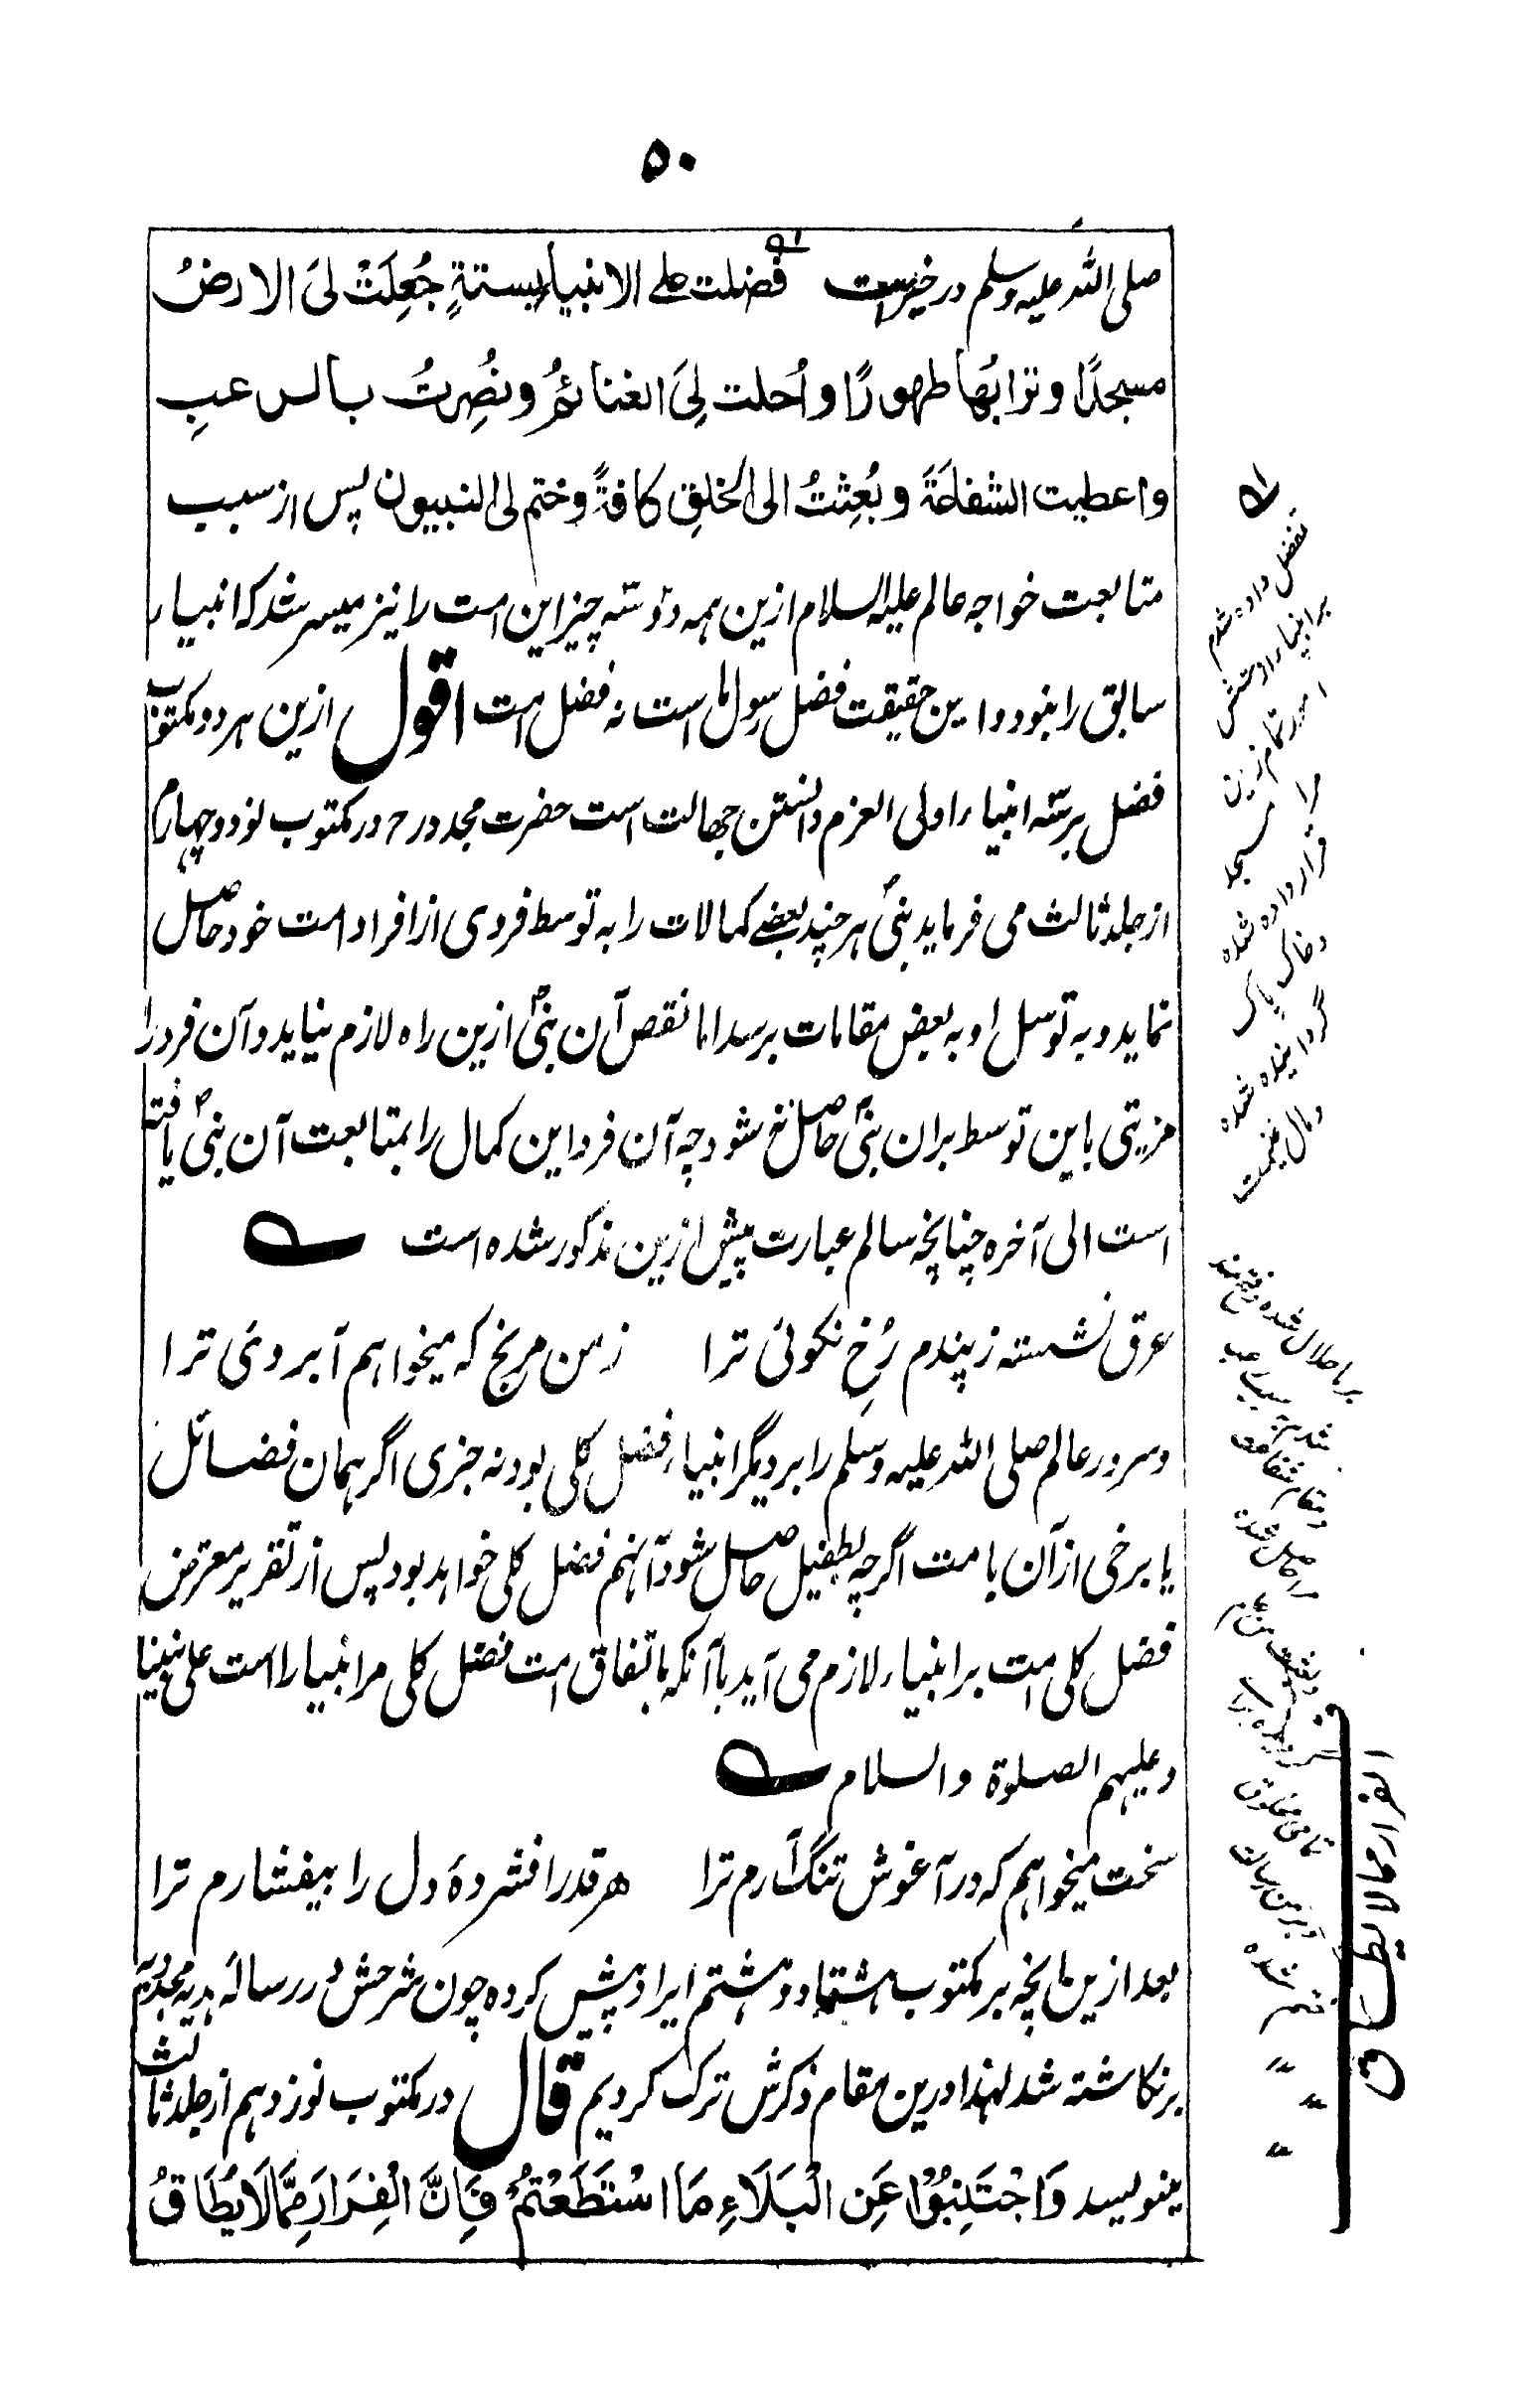 ۵۰
صلی الله علیه وسلم در خبرست فضلت علے الانبیاء بستةٍ جُعِلَتْ لیَ الارضُ
مسجدًا وترابُها طهورًا واُحلت لِیَ الغنائمُ ونُصِرتُ بالرعبِ
واعطیت الشفاعةَ وبُعِثتُ الی الخلقِ کافةً وختم لی النبیون پس از سبب
متابعت خواجه عالم علیه السلام ازین همه دو سه چیز این امت را نیز میسر شد که انبیاء
سابق را نبود و این حقیقت فضل رسول ما است نه فضل امت اقول ازین هر دو مکتوب
فضل بر سه انبیاء اولی العزم دانستن جهالت است حضرت مجدد رح در مکتوب نود و چهارم
از جلد ثالث می فرماید نبیؐ هر چند بعضے کمالات را به توسط فردی از افراد امت خود حاصل
نماید و به توسل او به بعض مقامات برسد اما نقص آن نبیؐ ازین راه لازم نیاید و آن فرد را
مزیتی باین توسط بران نبیؐ حاصل نمے شود چه آن فرد این کمال را بمتابعت آن نبیؐ یافته
است الی آخره چنانچه سالم عبارت پیش ازین مذکور شده است
عرق نشسته ز پندم رُخِ نکوئی ترا ز من مرنج که میخواهم آبروئ ترا
و سرور عالم صلی الله علیه وسلم را بر دیگر انبیاء فضل کلی بود نه جزی اگر همان فضائل
یا برخی از آن بامت اگرچه بطفیل حاصل شود آنهم فضل کلی خواهد بود پس از تقریر معترض
فضل کلی امت بر انبیاء لازم می آید با آنکه باتفاق امت فضل کلی مر انبیا راست علی نبینا
وعلیهم الصلوة والسلام
سخت میخواهم که در آغوش تنگ آرم ترا هر قدر افشردهٔ دل را بیفشارم ترا
بعد ازین مانچه بر مکتوب هشتاد و هشتم ایراد پیش کرده چون شرحش در رسالهٔ هدیه مجددیه
برنگاشته شد لهذا درین مقام ذکرش ترک کردیم قال در مکتوب نوزدهم از جلد ثالث
مینویسد وَاجْتَنِبُوْا عَنِ الْبَلَاءِ مَا اسْتَطَعْتُمْ فَاِنَّ الْفِرَارَ مِمَّا لَا یُطَاقُ
تفضل داده شدم
بر انبیاء
امور تمام زمین
مسجد
قرار داده شده
و خاک پاک
گردانیده شده
و مال غنیمت
بر ما حلال شده
الفرار مما لا یطاق